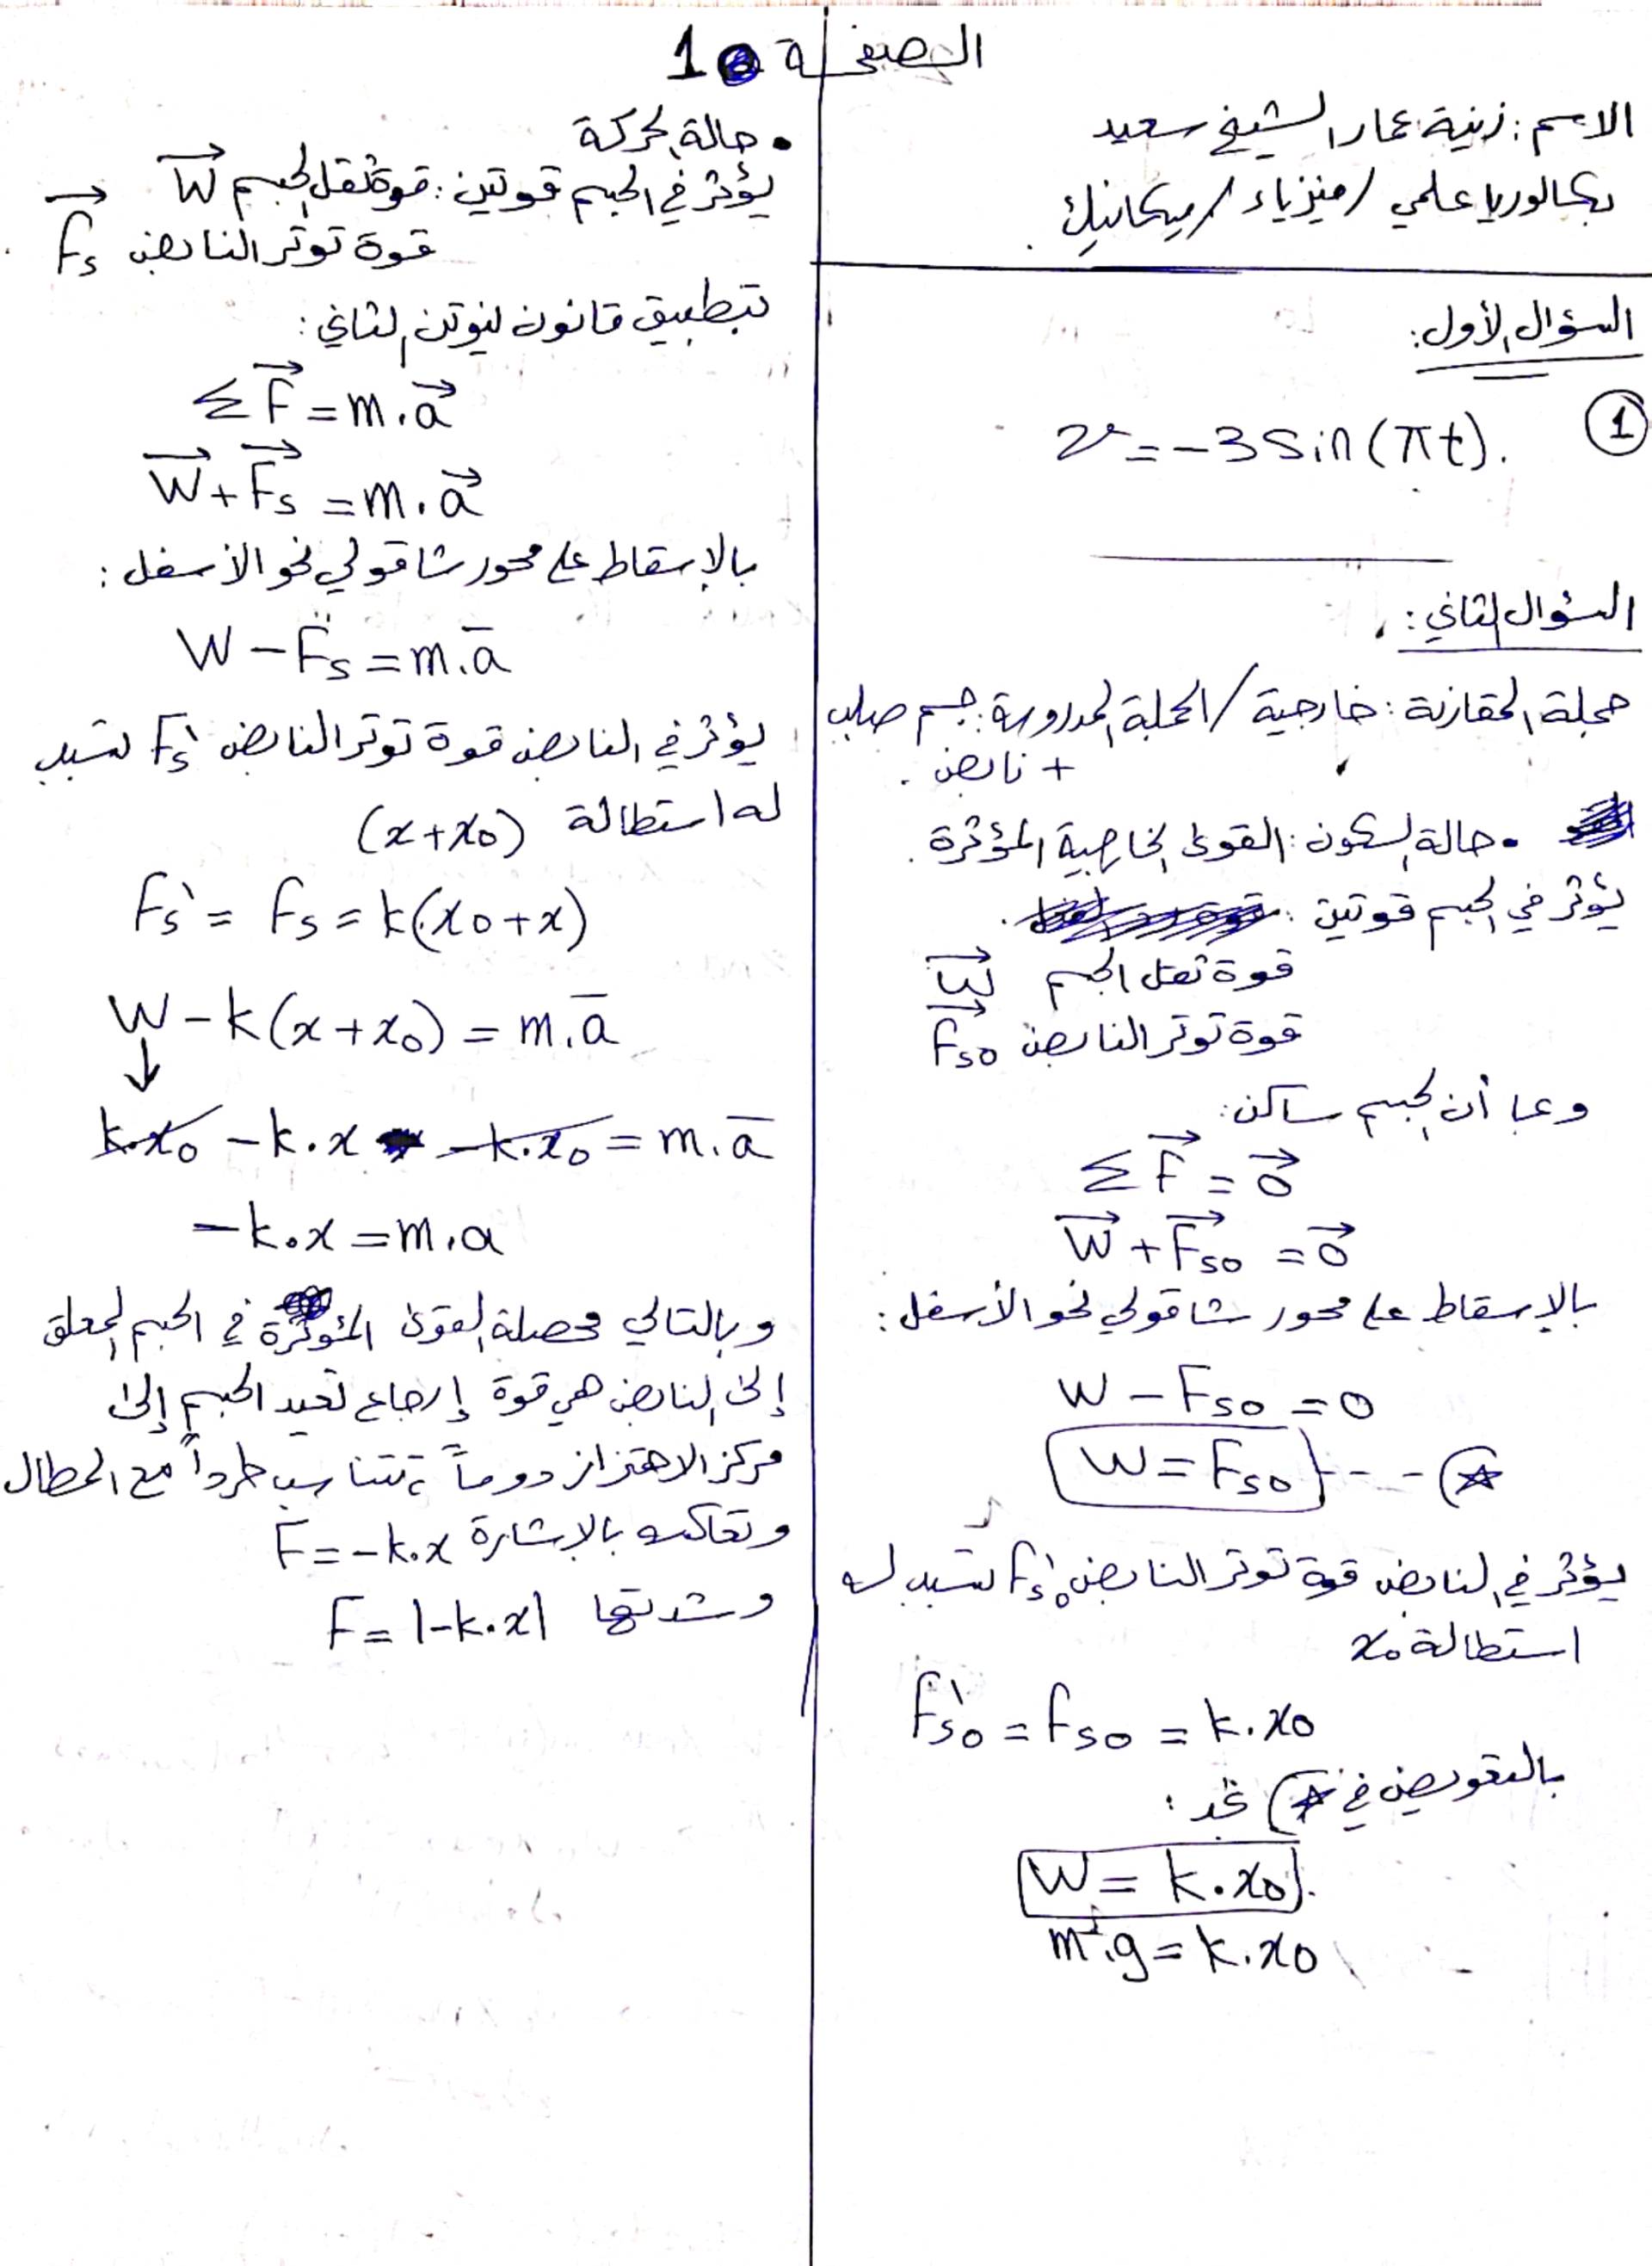 الصفحة 1
الاسم: زينة عمار الشيخ سعيد
بكالوريا علمي / فيزياء / ميكانيك.
السؤال الأول:
① v = -3 sin(πt).
السؤال الثاني:
جملة المقارنة: خارجية / الجملة المدروسة: جسم صلب
+ نابض.
• حالة السكون: القوى الخارجية المؤثرة.
يؤثر في الجسم قوتين:
قوة ثقل الجسم W⃗
قوة توتر النابض F⃗s0
وبما أن الجسم ساكن:
ΣF⃗ = 0⃗
W⃗ + F⃗s0 = 0⃗
بالإسقاط على محور شاقولي نحو الأسفل:
W - Fs0 = 0
W = Fs0 --- (☆
يؤثر في النابض قوة توتر النابض F's0 تسبب له
استطالة x0
F's0 = Fs0 = k.x0
بالتعويض في (☆ نجد:
W = k.x0.
m.g = k.x0
• حالة الحركة
يؤثر في الجسم قوتين: قوة ثقل الجسم W⃗
قوة توتر النابض F⃗s.
بتطبيق قانون نيوتن الثاني:
ΣF⃗ = m.a⃗
W⃗ + F⃗s = m.a⃗
بالإسقاط على محور شاقولي نحو الأسفل:
W - Fs = m.a̅
يؤثر في النابض قوة توتر النابض F's تسبب
له استطالة (x+x0)
F's = Fs = k(x0+x)
W - k(x+x0) = m.a̅
↓
k.x0 - k.x - k.x0 = m.a̅
-k.x = m.a
وبالتالي محصلة القوى المؤثرة في الجسم المعلق
إلى النابض هي قوة إرجاع تعيد الجسم إلى
مركز الاهتزاز دوماً، تتناسب طرداً مع المطال
وتعاكسه بالإشارة F = -k.x
وشدتها F = |-k.x|